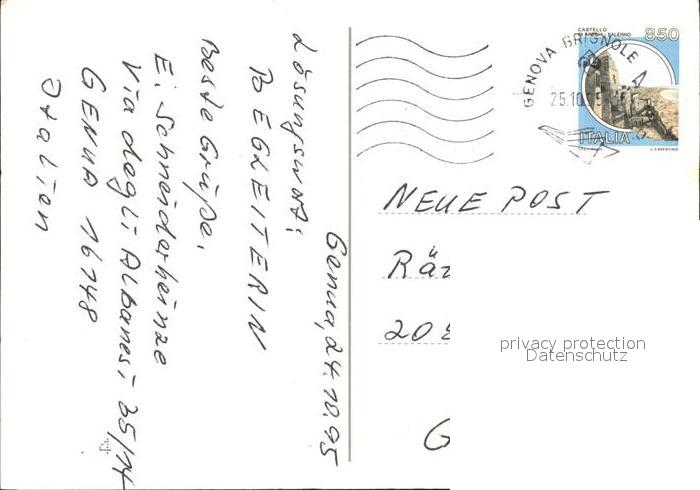 Genua, 24.10.95
Lösungswort:
BEGLEITERIN
Beste Grüße,
E. Schneiderheinze
Via degli Albanesi 35/14
GENUA 16148
Italien
CASTELLO
850
GENOVA BRIGNOLE
25.10.95
ITALIA
NEUE POST
privacy protection
Datenschutz